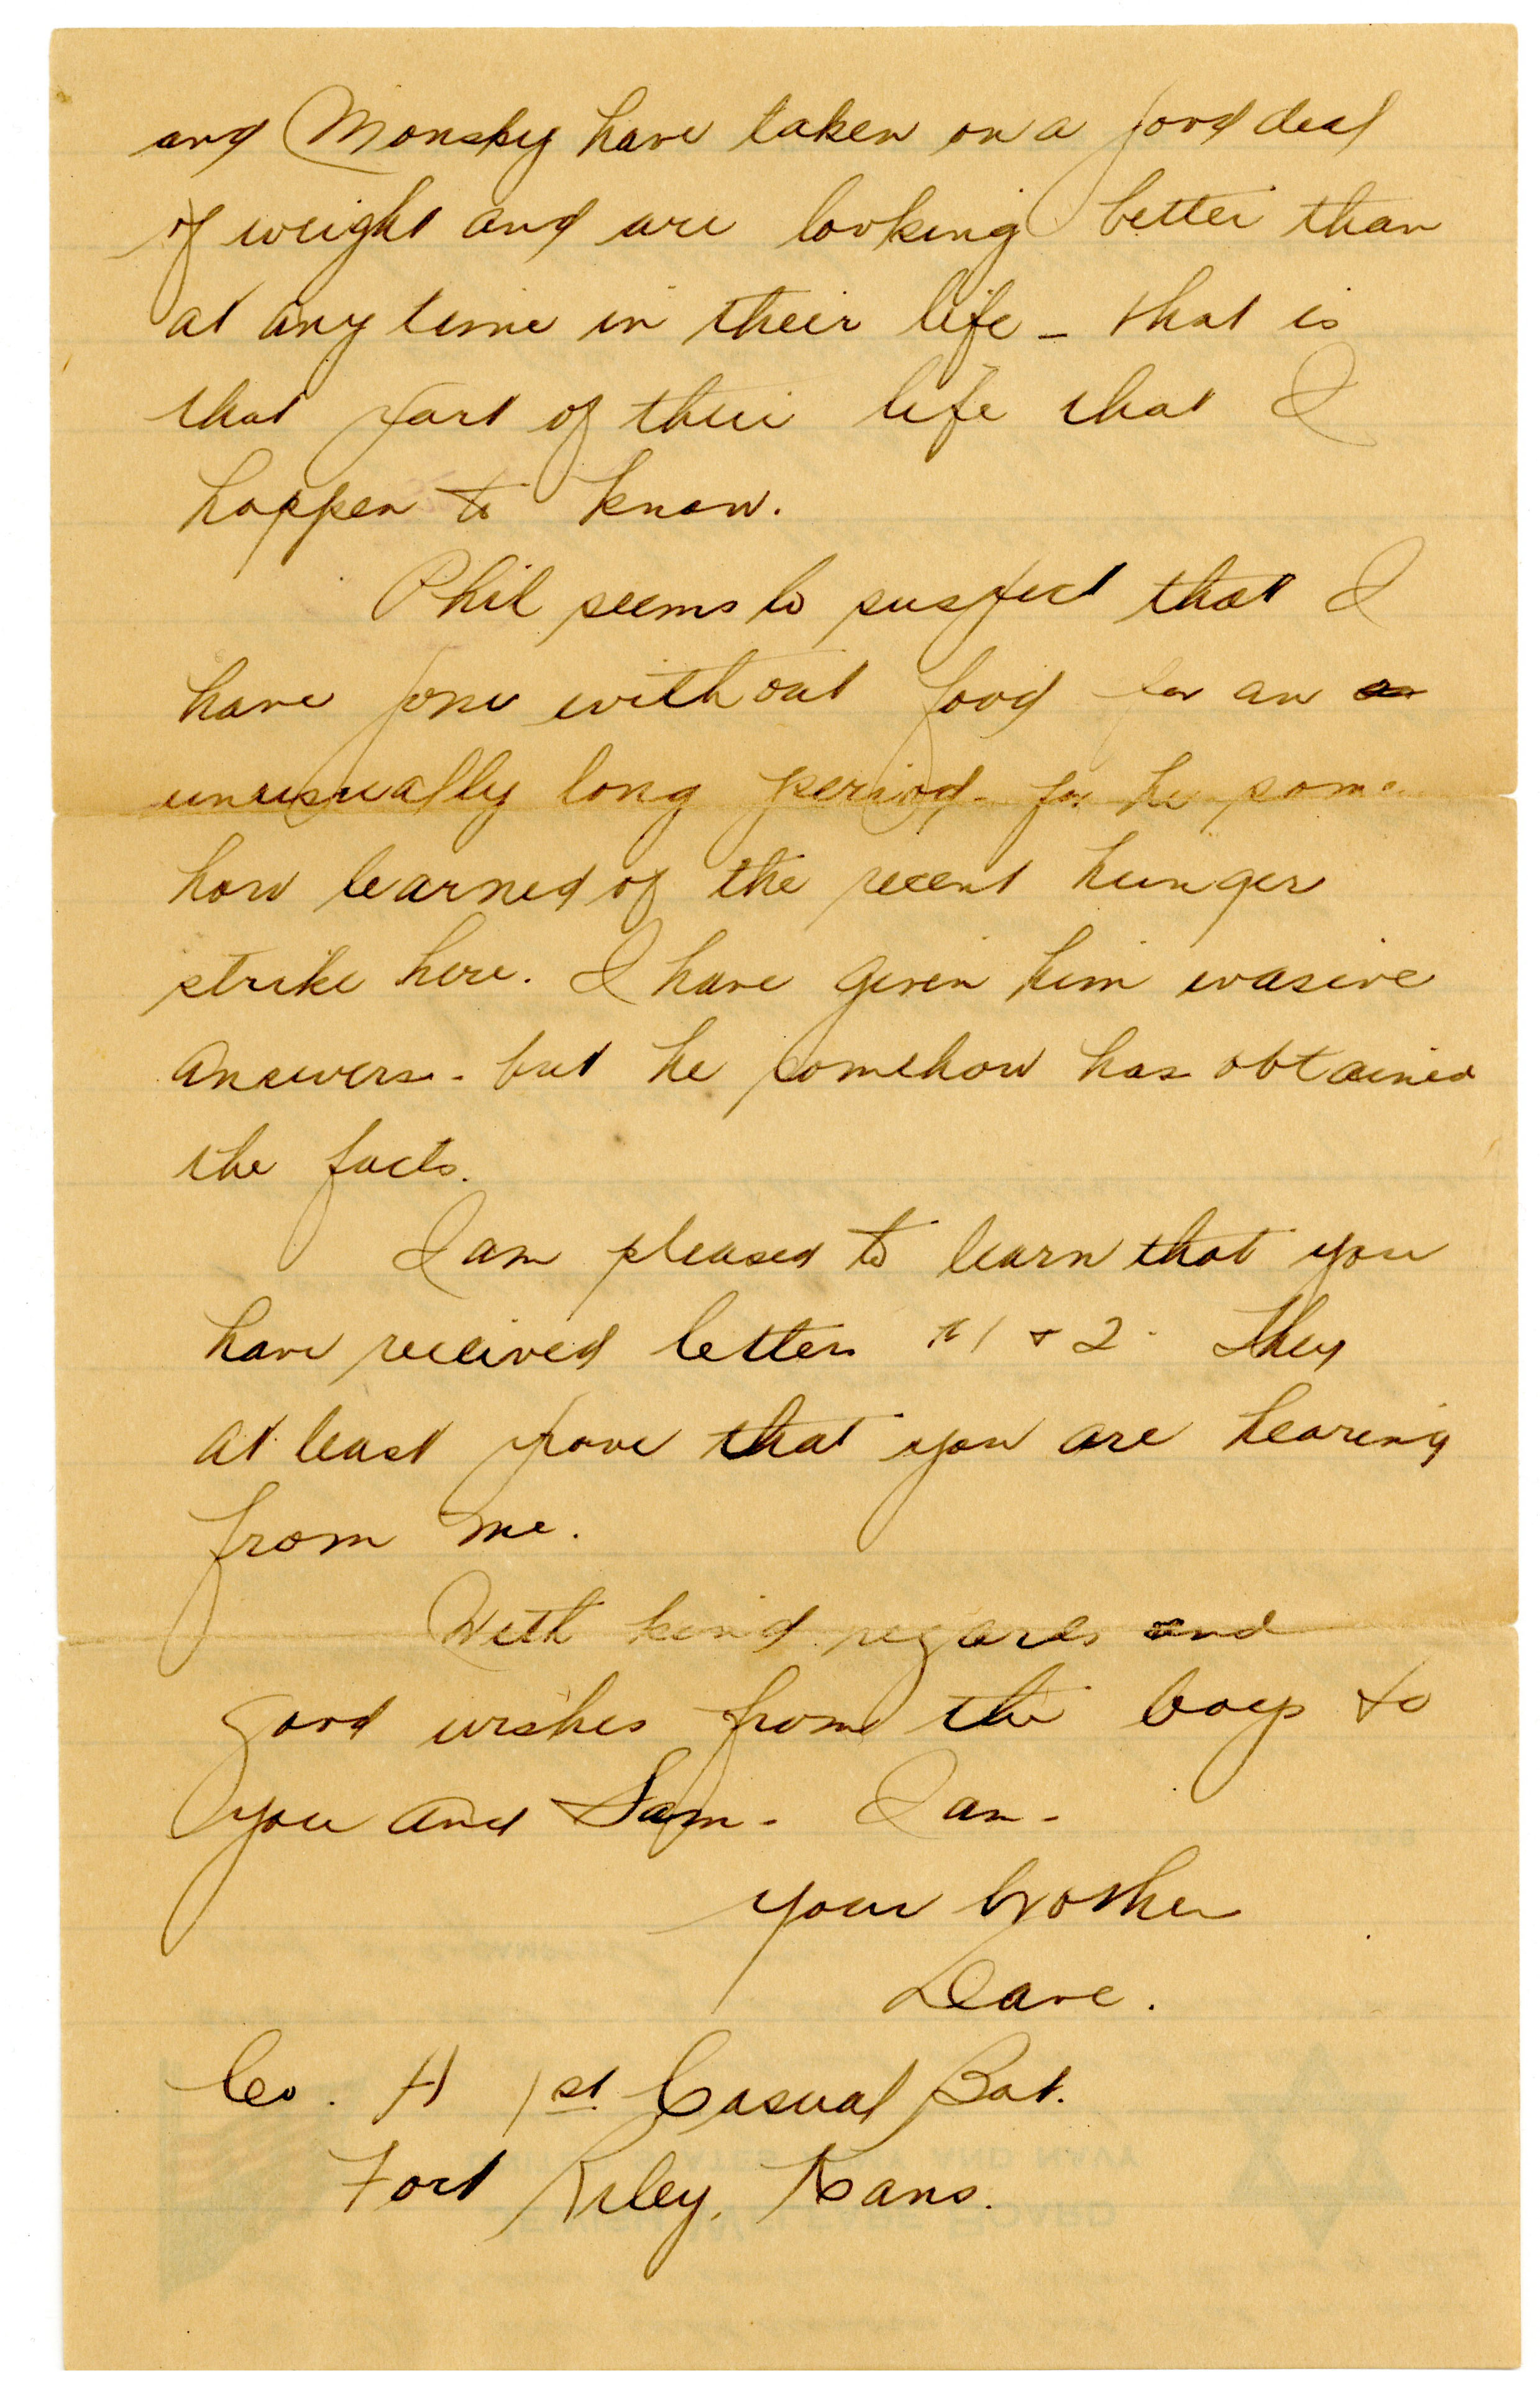 and Monsky have taken on a good deal
of weight and are looking better than
at any time in their life - that is
that part of their life that I
happen to know.
Phil seems to suspect that I
have gone without food for an
unusually long period - for he some
how learned of the recent hunger
strike here. I have given him evasive
answers - but he somehow has obtained
the facts.
I am pleased to learn that you
have received letters #1 & 2. They
at least prove that you are hearing
from me.
With kind regards and
good wishes from the boys to
you and Sam - I am -
your brother
Dave.
Co. H 1st Casual Bat.
Fort Riley, Kans.
UNITED STATES ARMY AND NAVY
JEWISH WELFARE BOARD